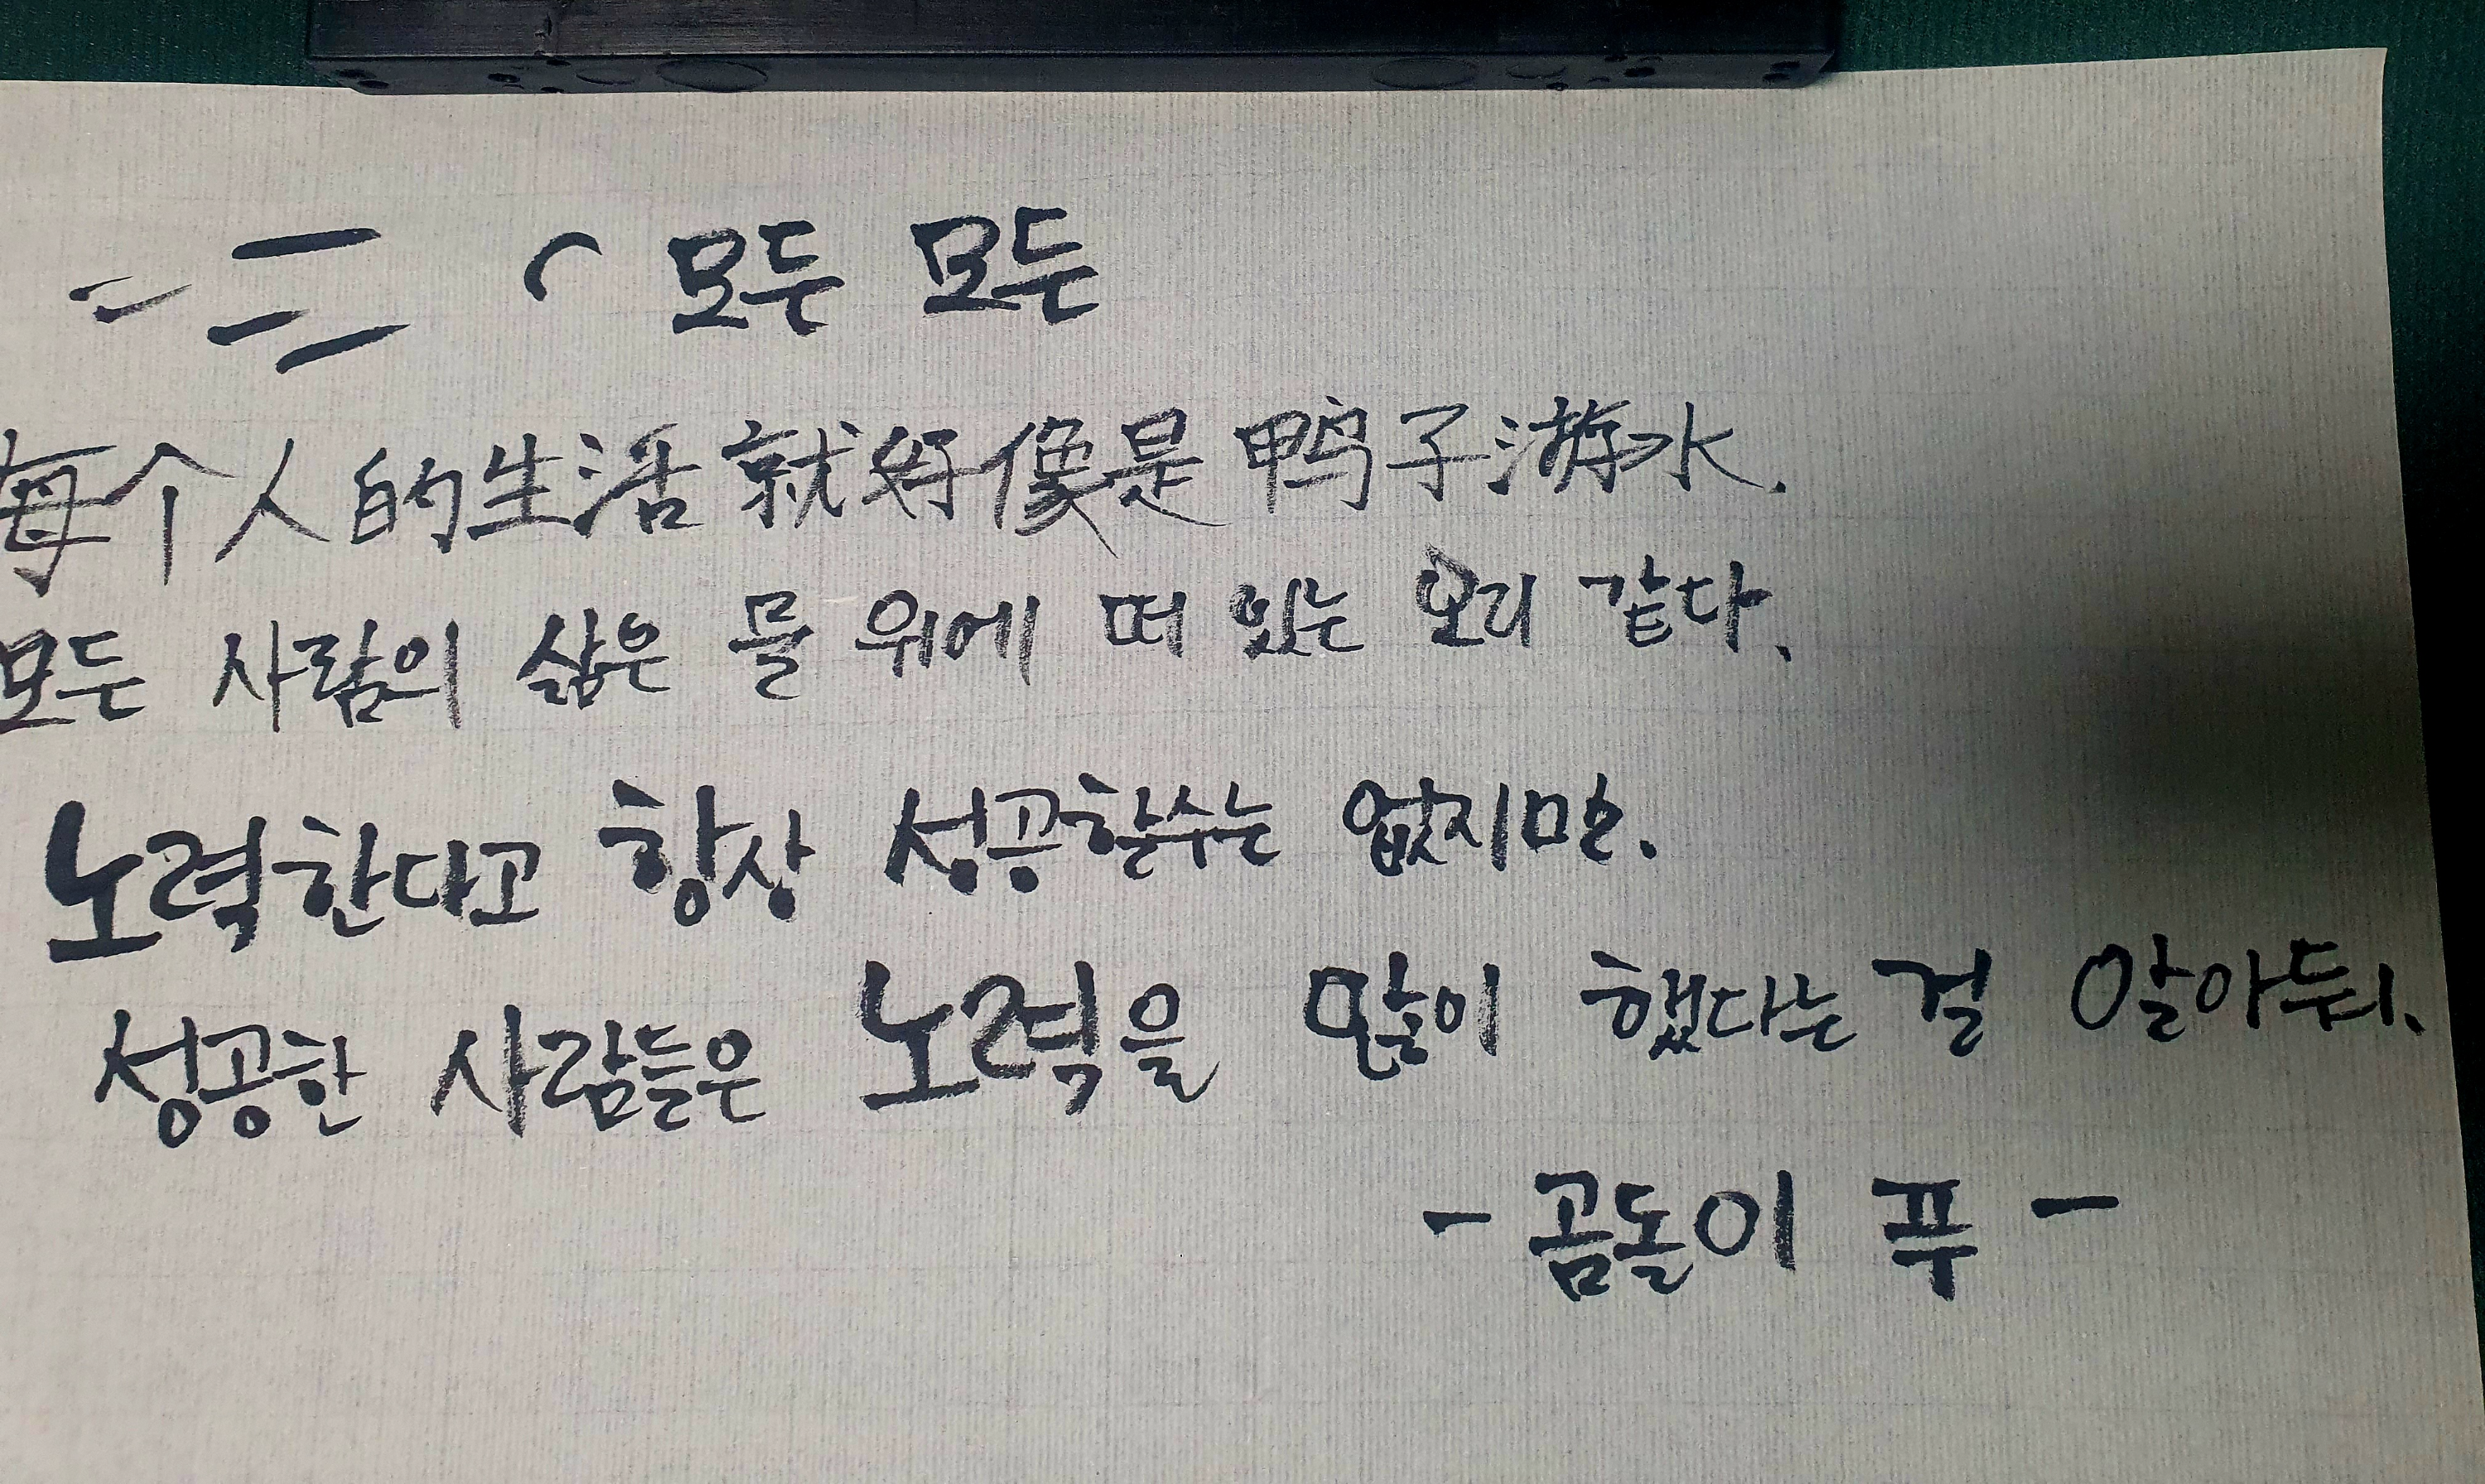 모든 모든
每个人的生活就好像是鸭子游水.
모든 사람의 삶은 물 위에 떠 있는 오리 같다.
노력한다고 항상 성공할수는 없지만.
성공한 사람들은 노력을 많이 했다는 걸 알아둬.
- 곰돌이 푸 -